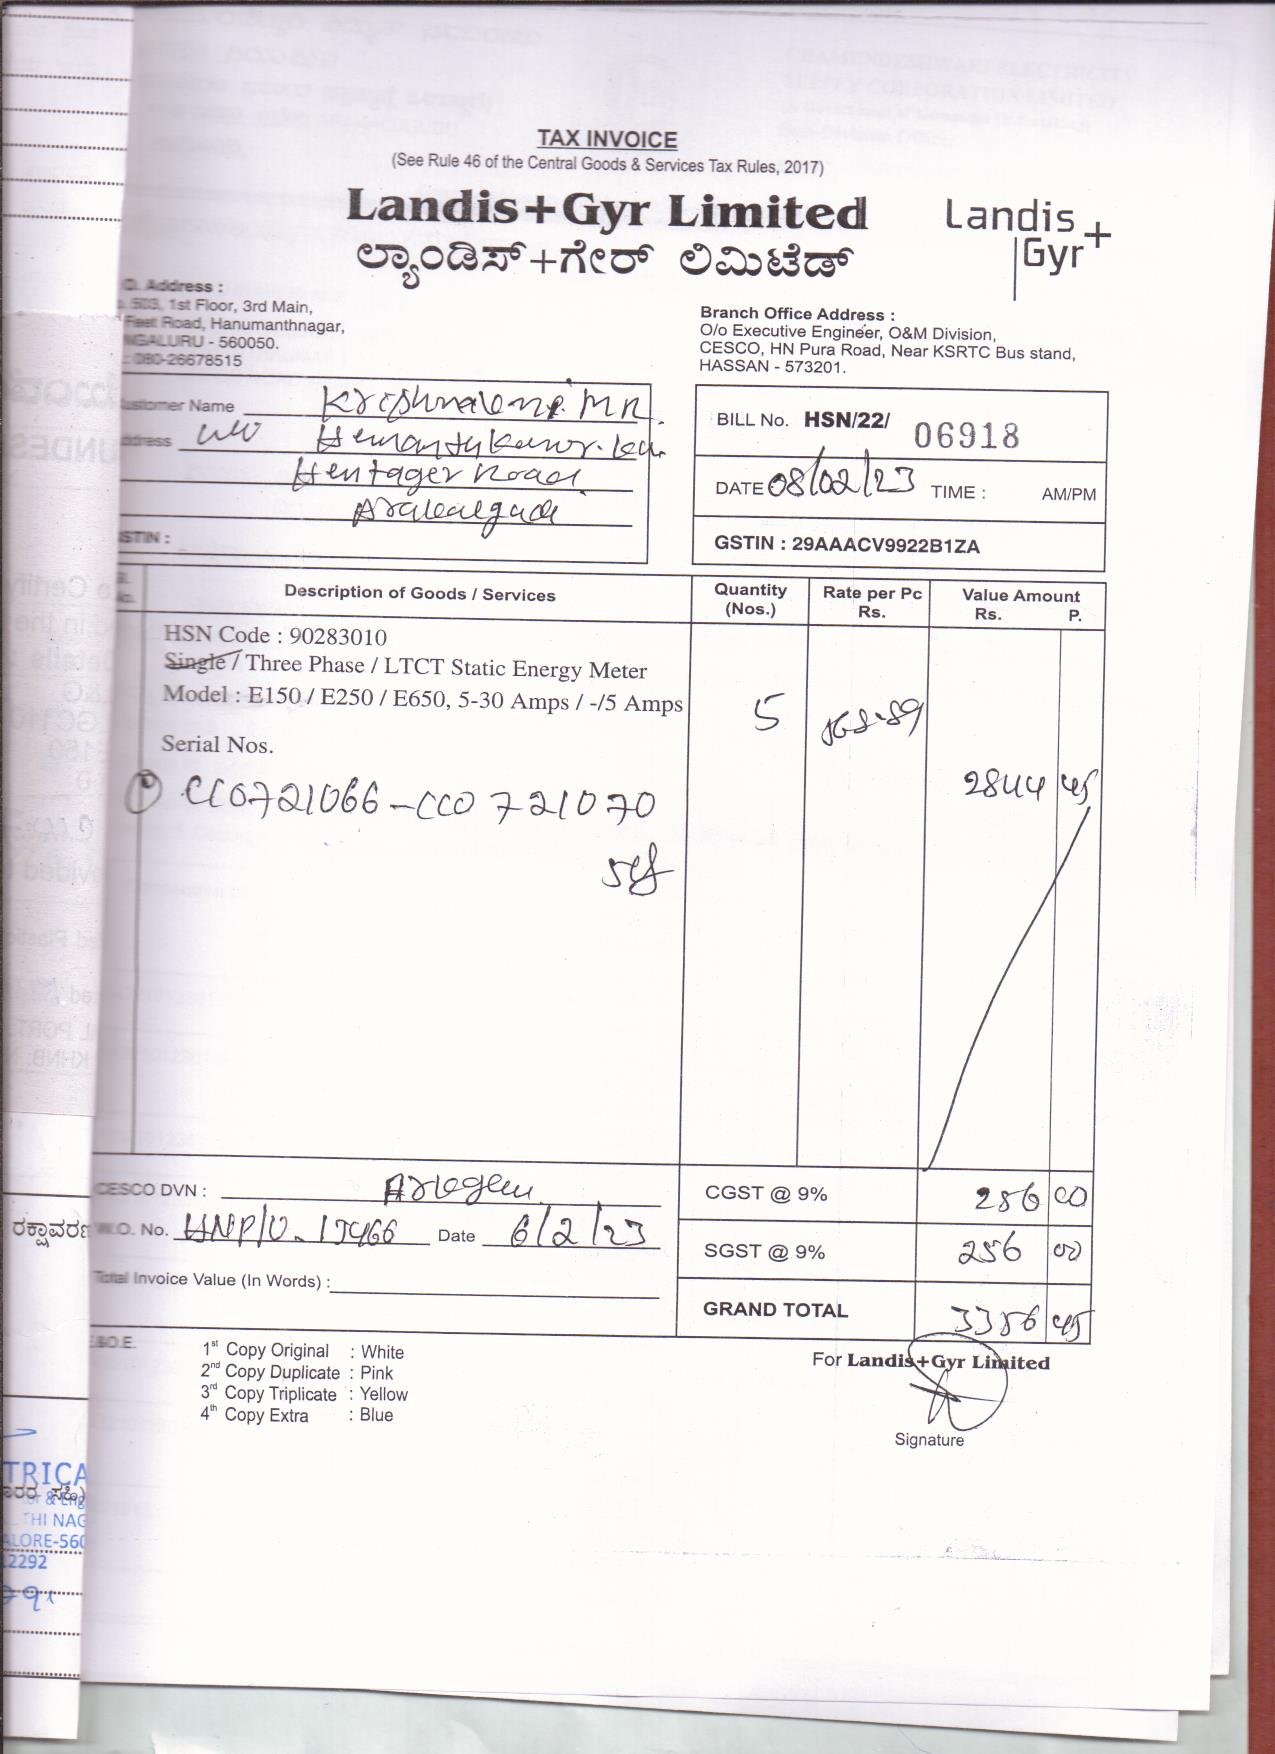 TAX INVOICE
(See Rule 46 of the Central Goods & Services Tax Rules, 2017)
Landis+Gyr Limited
ಲ್ಯಾಂಡಿಸ್+ಗೇರ್ ಲಿಮಿಟೆಡ್
Landis
Gyr+
O. Address :
503, 1st Floor, 3rd Main,
Feet Road, Hanumanthnagar,
NGALURU - 560050.
: 080-26678515
Branch Office Address :
O/o Executive Engineer, O&M Division,
CESCO, HN Pura Road, Near KSRTC Bus stand,
HASSAN - 573201.
ustomer Name
ddress
Road
STIN :
BILL No. HSN/22/ 06918
DATE 08/02/23 TIME : AM/PM
GSTIN : 29AAACV9922B1ZA
Description of Goods / Services
Quantity (Nos.)
Rate per Pc Rs.
Value Amount Rs. P.
HSN Code : 90283010
Single / Three Phase / LTCT Static Energy Meter
Model : E150 / E250 / E650, 5-30 Amps / -/5 Amps
5 568.89
Serial Nos.
CC0721066-CC0721070
2844 45
CESCO DVN :
CGST @ 9% 256 00
W.O. No. Date 6/2/23
SGST @ 9% 256 00
Total Invoice Value (In Words) :
GRAND TOTAL 3356 45
E&O.E.
1st Copy Original : White
2nd Copy Duplicate : Pink
3rd Copy Triplicate : Yellow
4th Copy Extra : Blue
For Landis+Gyr Limited
Signature
ರಕ್ಷಾವರಣ
TRICA
THI NAG
ALORE-560
2292